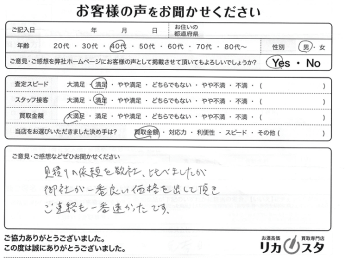 お客様の声をお聞かせください
ご記入日 年 月 日 お住いの都道府県
年齢 20代 ・ 30代 ・ 40代 ・ 50代 ・ 60代 ・ 70代 ・ 80代～ 性別 男 ・ 女
ご意見・ご感想を弊社ホームページにお客様の声として掲載させて頂いてもよろしいでしょうか? Yes ・ No
査定スピード 大満足 ・ 満足 ・ やや満足 ・ どちらでもない ・ やや不満 ・ 不満 ・ ( )
スタッフ接客 大満足 ・ 満足 ・ やや満足 ・ どちらでもない ・ やや不満 ・ 不満 ・ ( )
買取金額 大満足 ・ 満足 ・ やや満足 ・ どちらでもない ・ やや不満 ・ 不満 ・ ( )
当店をお選びいただきました決め手は? 買取金額 ・ 対応力 ・ 利便性 ・ スピード ・ その他 ( )
ご意見・ご感想などぜひお聞かせください
見積りの依頼を数社、比べましたが
御社が一番良い価格を出して頂き
ご連絡も一番速かったです。
ご協力ありがとうございました。
この度は誠にありがとうございました。
お酒高価 買取専門店
リカスタ